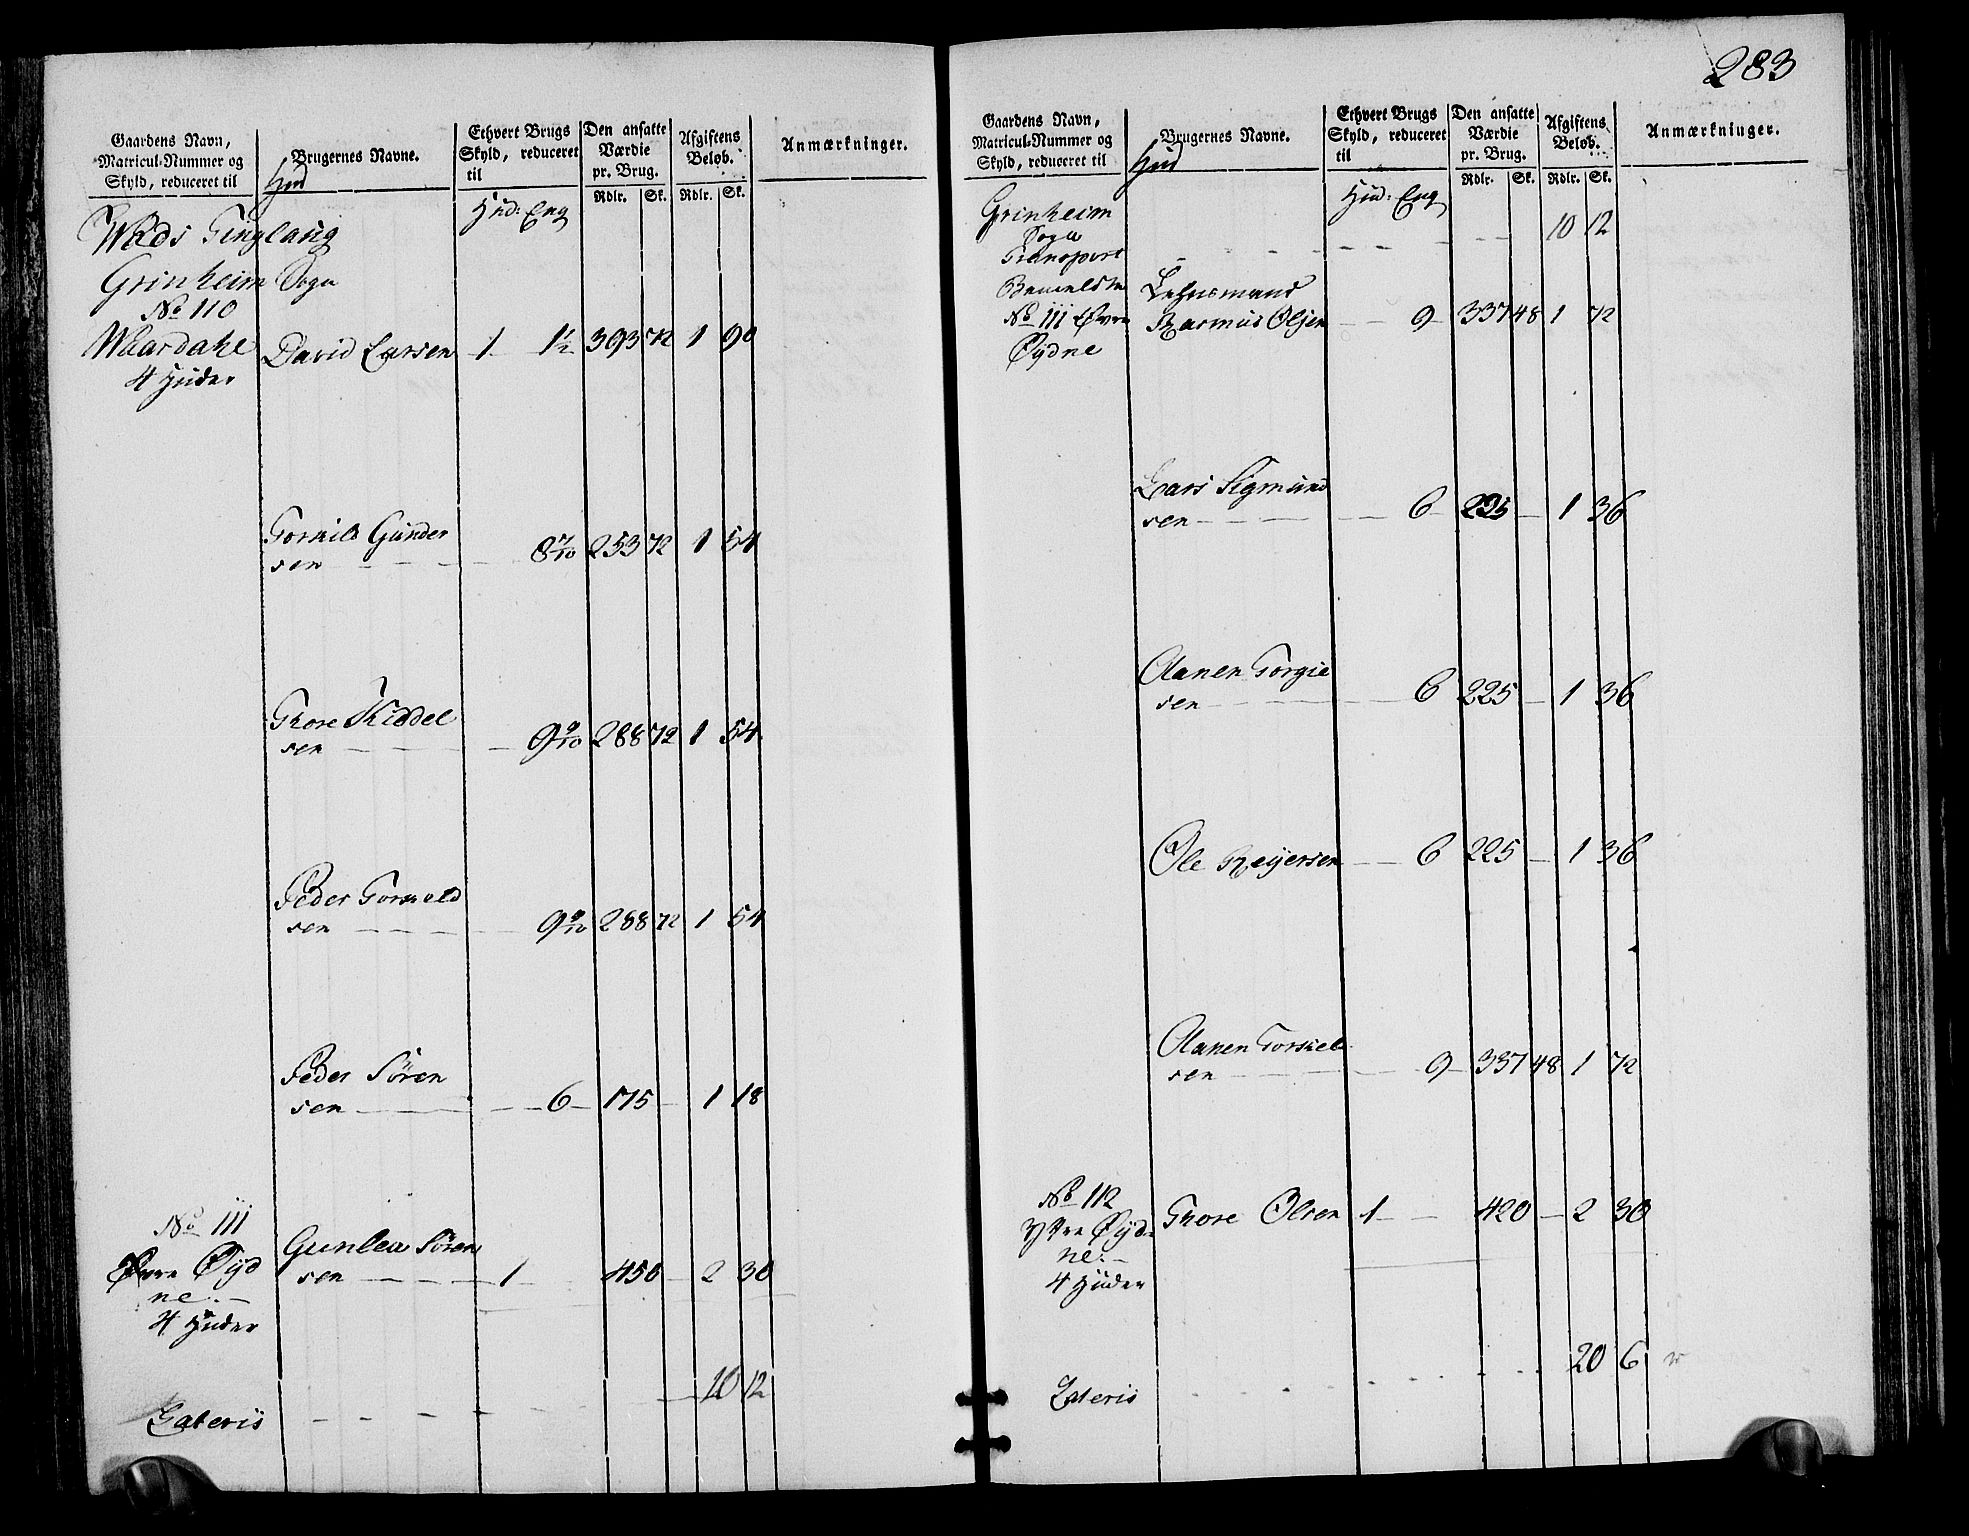 283
Gaardens Navn,
Matricul-Nummer og
Skyld, reduceret til
Hud
Brugernes Navne.
Ethvert Brugs
Skyld, reduceret
til
Den ansatte
Værdie
pr. Brug.
Rdlr. Sk.
Afgiftens
Beløb.
Rdlr. Sk.
Anmærkninger.
Hud: Eng
Tinglaug
Grinheim Sogn
No 110
4 Huder
David Larsen 1 1½ 393 72 1 90
Gunder
sen 8 7/10 253 72 1 54
Thore Kiddel
sen 9 9/10 288 72 1 54
Peder
sen 9 9/10 288 72 1 54
Peder Sören
sen 6 175 1 18
No 111
Øvre Øyd
ne
4 Huder
Sören
sen 1 450 2 30
10 12
Lateris
Gaardens Navn,
Matricul-Nummer og
Skyld, reduceret til
Hud
Brugernes Navne.
Ethvert Brugs
Skyld, reduceret
til
Den ansatte
Værdie
pr. Brug.
Rdlr. Sk.
Afgiftens
Beløb.
Rdlr. Sk.
Anmærkninger.
Hud: Eng
Grinheim
Sogn
Transport 10 12
No 111 Øvre
Øydne
Lehnsmand
Rasmus Olsen 9 337 48 1 72
Lars Sigmund
sen 6 225 1 36
Aanen Torgie
sen 6 225 1 36
Ole Reijersen 6 225 1 36
Aanen Torkel
sen 9 337 48 1 72
No 112
Ytre Øyd
ne
4 Huder
Thore Olsen 1 420 2 30
20 6
Lateris